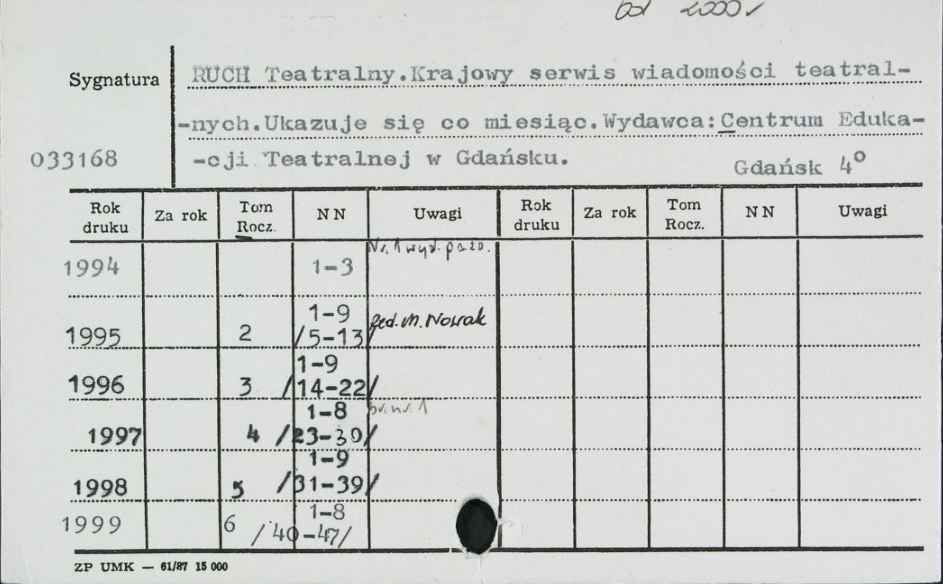 od 2000 ✓
Sygnatura RUCH Teatralny.Krajowy serwis wiadomości teatral-
-nych.Ukazuje się co miesiąc.Wydawca:Centrum Eduka-
033168 -cji Teatralnej w Gdańsku.
Gdańsk 4°
Rok druku Za rok Tom Rocz. NN Uwagi Rok druku Za rok Tom Rocz. NN Uwagi
Nr. 1 wyd. paźdz.
1994 1-3
1-9 Red. M. Nowak
1995 2 /5-13
1-9
1996 3 /14-22/
1-8 br. nr. 1
1997 4 /23-30/
1-9
1998 5 /31-39/
1-8
1999 6 /40-47/
ZP UMK — 61/87 15 000